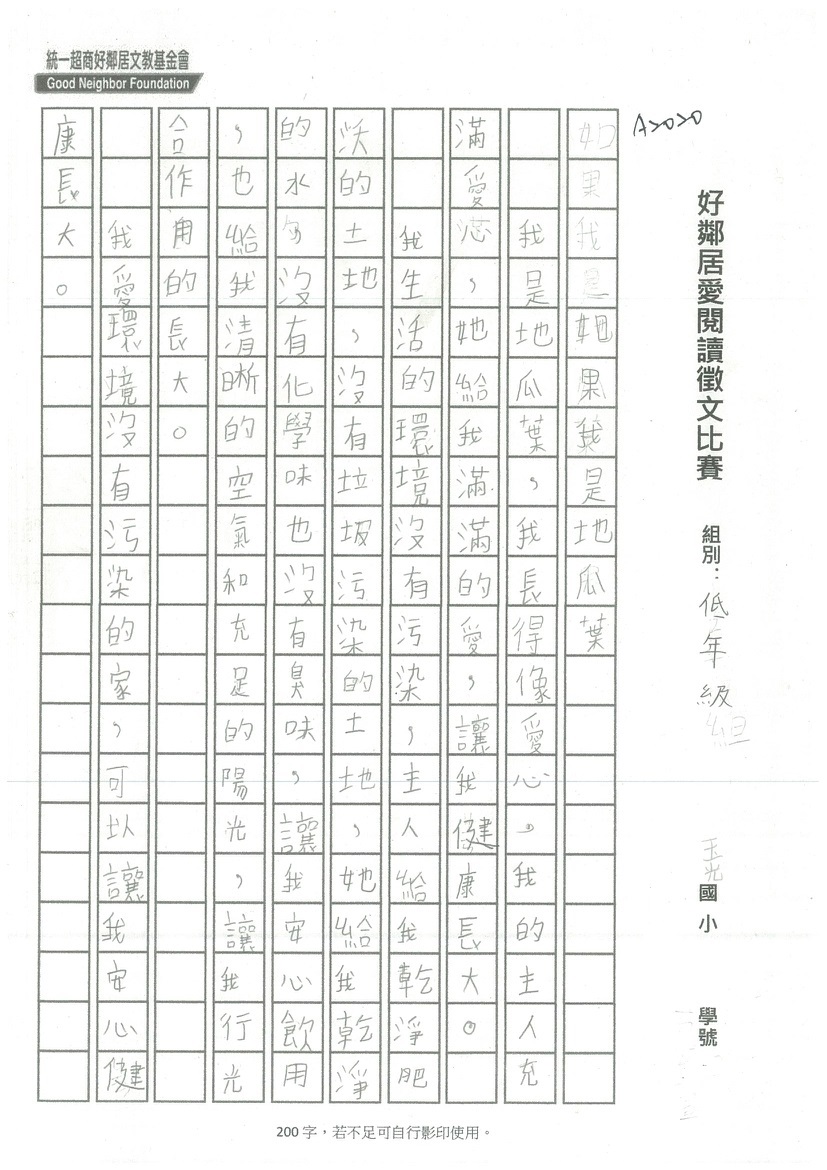 統一超商好鄰居文教基金會
Good Neighbor Foundation
A2020
好鄰居愛閱讀徵文比賽 組別：低年級組 玉光國小 學號
如果我是如果我是地瓜葉
我是地瓜葉，我長得像愛心，我的主人充
滿愛心，她給我滿滿的愛，讓我健康長大。
我生活的環境沒有污染，主人給我乾淨肥
沃的土地，沒有垃圾污染的土地，她給我乾淨
的水勾沒有化學味也沒有臭味，讓我安心飲用
，也給我清晰的空氣和充足的陽光，讓我行光
合作用的長大。
我愛環境沒有污染的家，可以讓我安心健
康長大。
200 字，若不足可自行影印使用。